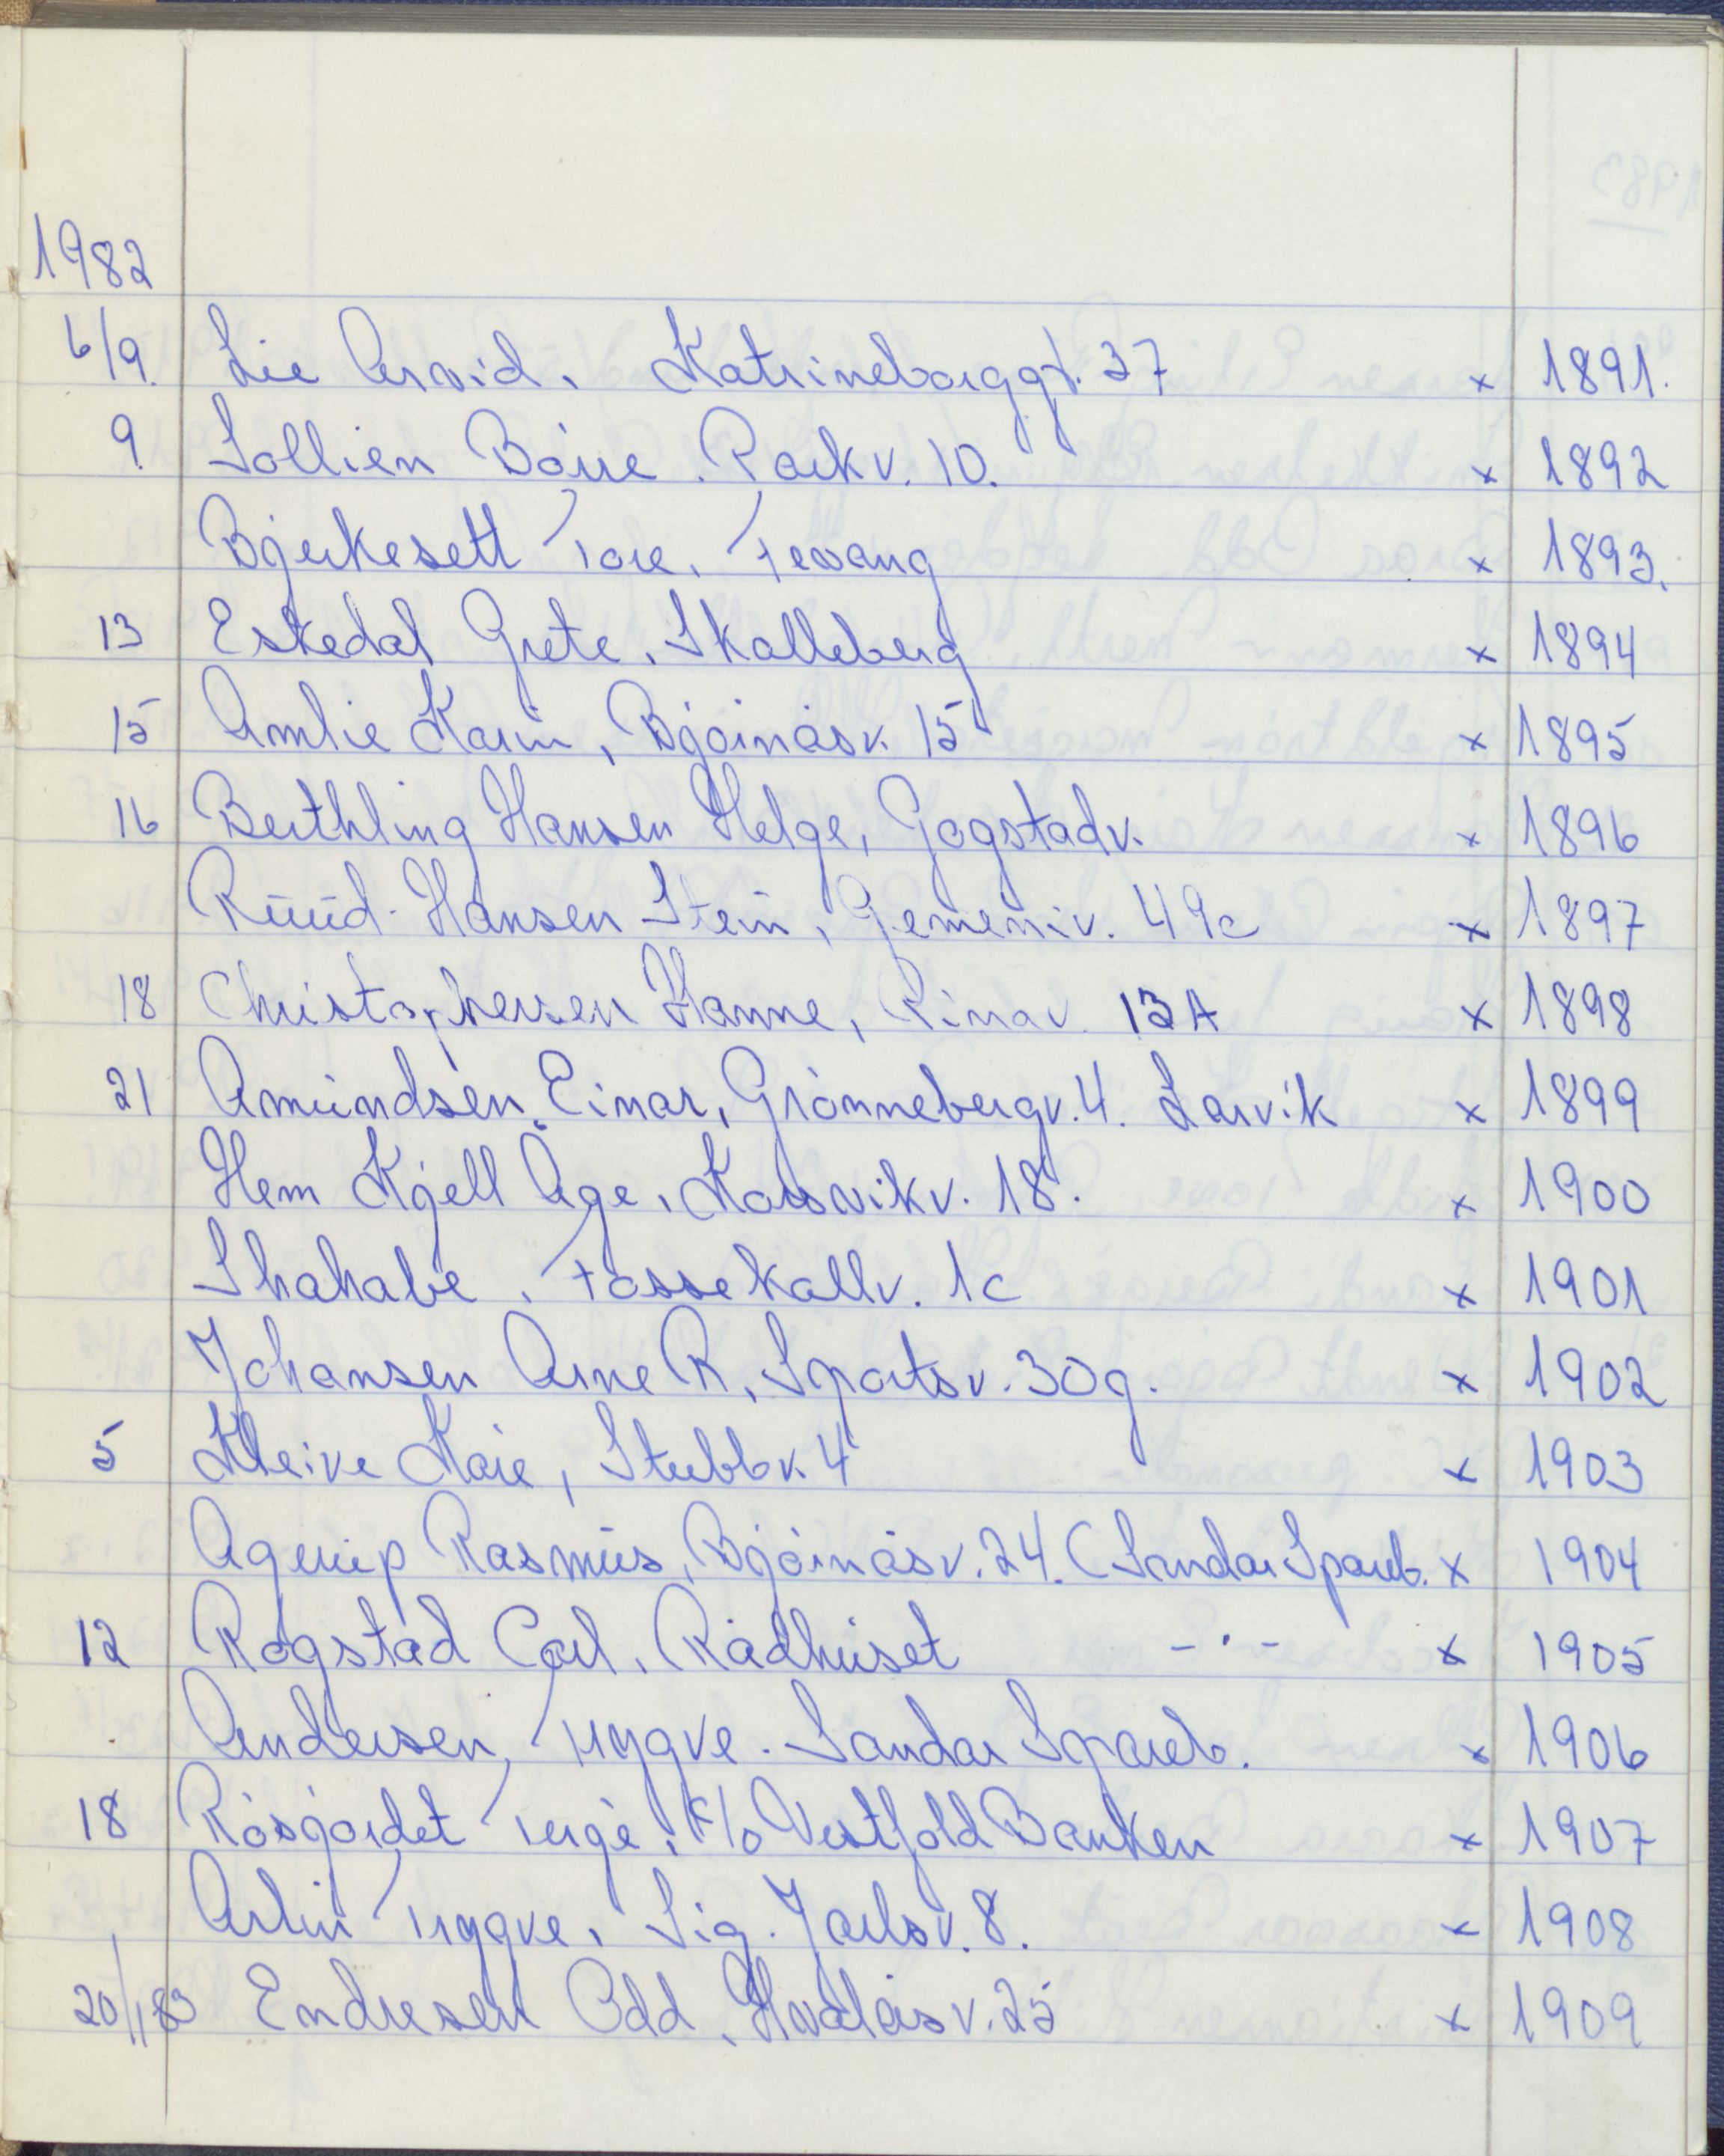 1982
6/9. Lie Arvid. Katrineborggt. 37 x 1891.
9. Sollien Börre. Parkv. 10. x 1892
Bjerkesett Tore. Tevang x 1893.
13 Eskedal Grete. Skalleberg x 1894
15 Amlie Karin, Björnåsv. 15 x 1895
16 Berthling Hansen Helge, Gogstadv. x 1896
Ruud-Hansen Stein, Gemeniv. 49c x 1897
18 Christophersen Hanne, Rinav. 13A x 1898
21 Amundsen Einar, Grönnebergv. 4. Larvik x 1899
Hem Kjell Åge. Kausvikv. 18. x 1900
Shahabe. Fossekallv. 1c x 1901
Johansen Arne R. Sportsv. 30g. x 1902
5 Kleive Kåre, Stubbv. 4 x 1903
Agerup Rasmus, Björnåsv. 24. (Sandar Spareb. x 1904
12 Rogstad Carl. Rådhuset -·- x 1905
Andersen, Trygve. Sandar Spareb. x 1906
18 Rösgårdet Terje, c/o Vestfold Banken x 1907
Arlin Trygve. Sig. Jarlsv. 8. x 1908
20/1 83 Endresen Odd. Hvalåsv. 25 x 1909